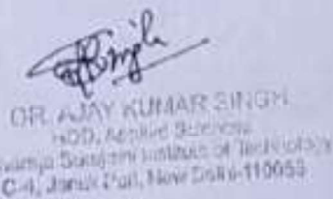 DR. AJAY KUMAR SINGH
HOD, Applied Sciences
Institute of Technology
C-4, Janak Puri, New Delhi-110058